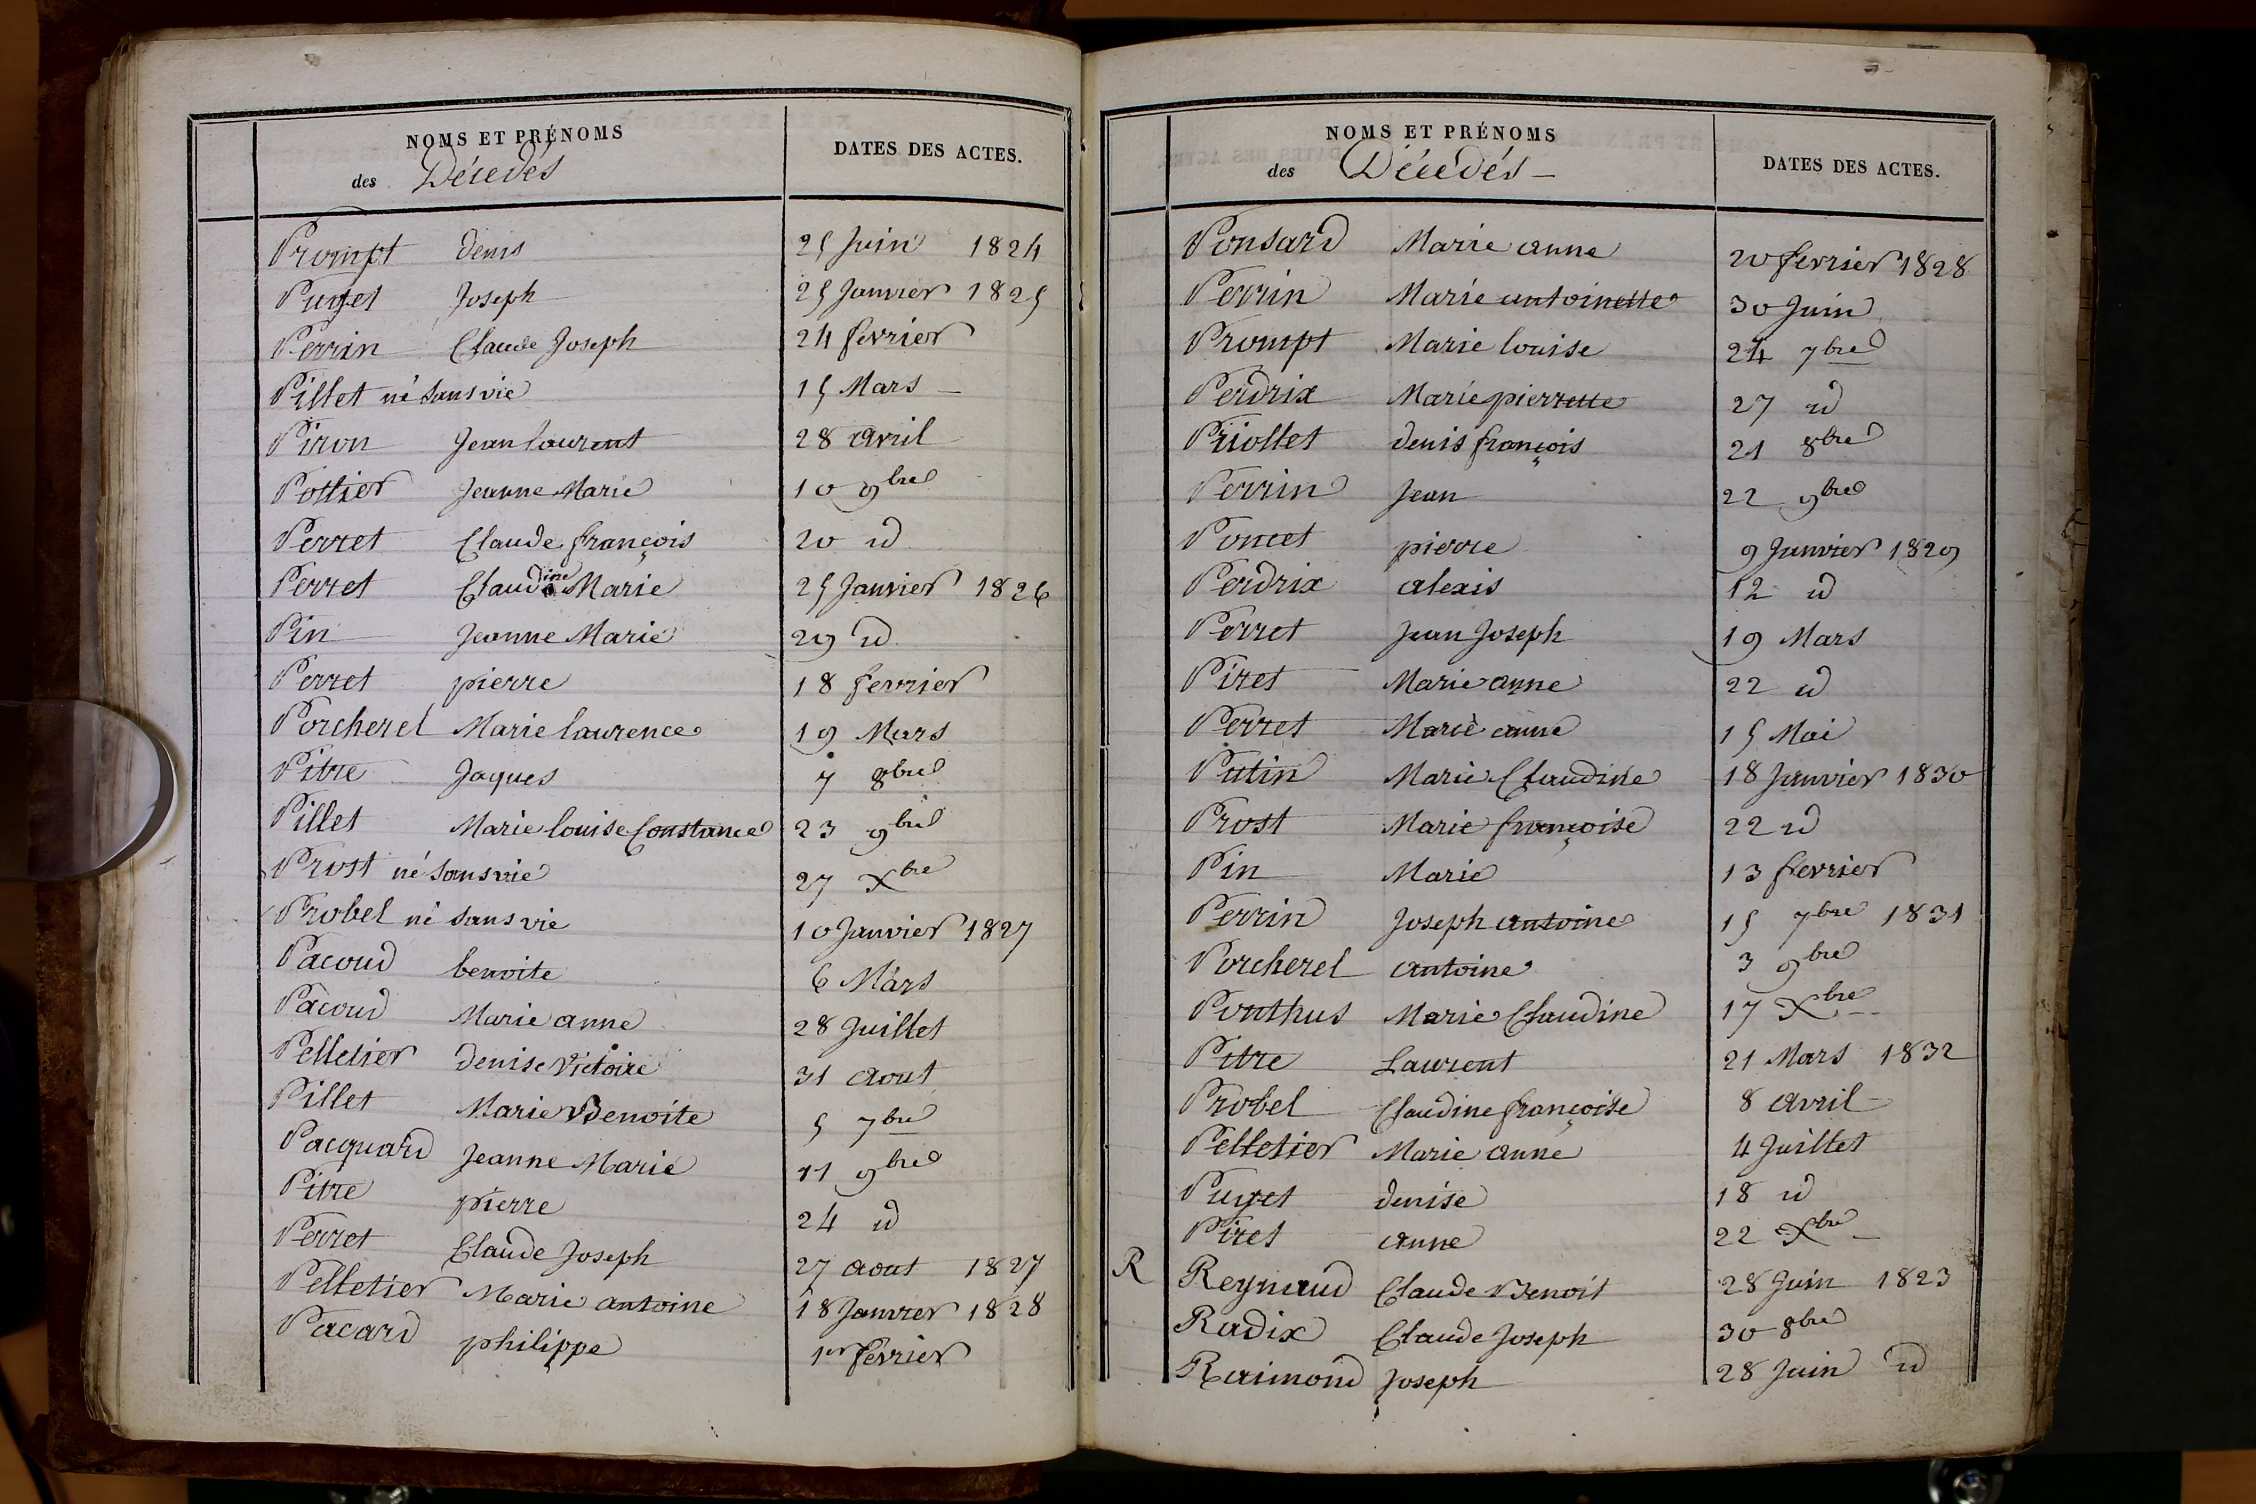 NOMS ET PRÉNOMS
des Décedés
DATES DES ACTES.
Prompt Denis 25 Juin 1824
Puget Joseph 25 Janvier 1825
Perrin Claude Joseph 24 fevrier
Pillet né sans vie 15 Mars
Piron Jean laurent 28 avril
Pottier Jeanne Marie 10 9bre
Perret Claude françois 20 id
Perret Claudine Marie 25 Janvier 1826
Pin Jeanne Marie 29 id
Perret pierre 18 fevrier
Porcherel Marie laurence 19 Mars
Pitre Jaques 7 8bre
Pillet Marie louise Constance 23 9bre
Prost né sans vie 27 Xbre
Probel né sans vie 10 Janvier 1827
Pacoud benoite 6 Mars
Pacoud Marie anne 28 Juillet
Pelletier Denise Victoire 31 aout
Pillet Marie Benoite 5 7bre
Pacquard Jeanne Marie 11 9bre
Pitre pierre 24 id
Perret Claude Joseph 27 aout 1827
Pelletier Marie antoine 18 Janvier 1828
Pacard philippe 1er fevrier
NOMS ET PRÉNOMS
des Décédés
DATES DES ACTES.
Ponsard Marie anne 20 fevrier 1828
Perrin Marie antoinette 30 Juin
Prompt Marie louise 24 7bre
Perdrix Marie pierrette 27 id
Priollet denis françois 21 8bre
Perrin Jean 22 9bre
Poncet pierre 9 Janvier 1829
Perdrix alexis 12 id
Perret Jean Joseph 19 Mars
Piret Marie anne 22 id
Perret Marie anne 15 Mai
Putin Marie Claudine 18 Janvier 1830
Prost Marie françoise 22 id
Pin Marie 13 fevrier
Perrin Joseph antoine 15 7bre 1831
Porcherel antoine 3 9bre
Ponthus Marie Claudine 17 Xbre
Pitre Laurent 21 Mars 1832
Probel Claudine françoise 8 avril
Pelletier Marie anne 4 Juillet
Puget denise 18 id
Piret anne 22 Xbre
R Reynaud Claude Benoit 28 Juin 1823
Radix Claude Joseph 30 8bre
Raimond Joseph 28 Juin id